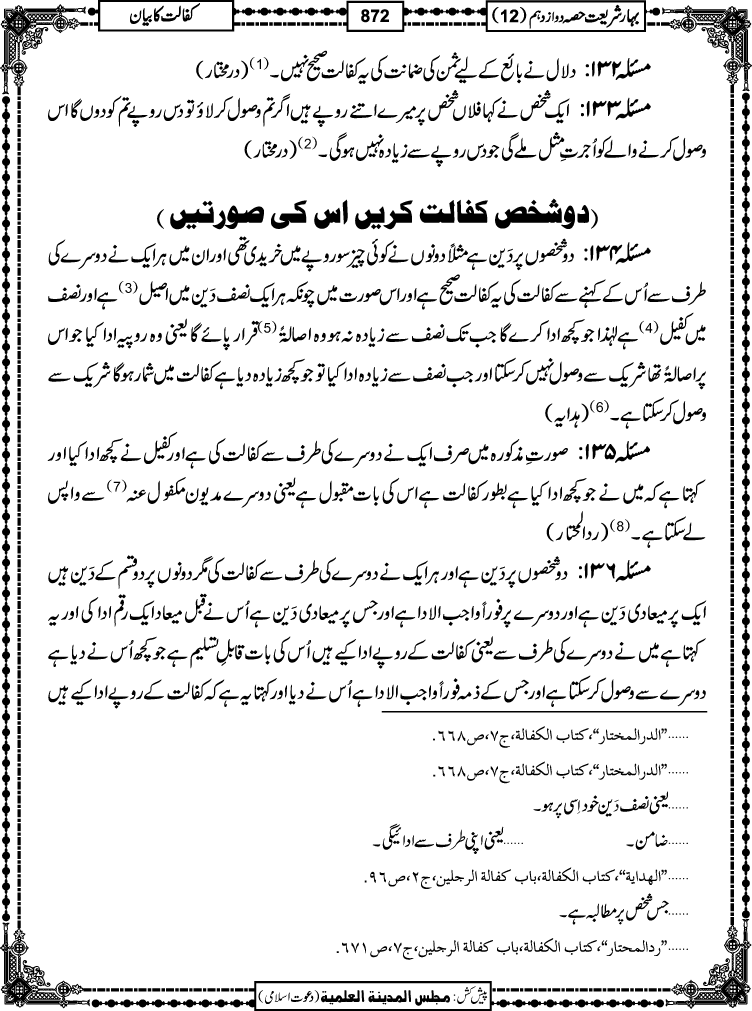 بہارشریعت حصہ دوازدہم (12)
872
کفالت کا بیان
مسئلہ ۱۳۲: دلال نے بائع کے لیے ثمن کی ضمانت کی یہ کفالت صحیح نہیں۔(1) (درمختار)
مسئلہ ۱۳۳: ایک شخص نے کہا فلاں شخص پر میرے اتنے روپے ہیں اگر تم وصول کر لاؤ تو دس روپے تم کو دوں گا اس
وصول کرنے والے کو اُجرتِ مثل ملے گی جو دس روپے سے زیادہ نہیں ہوگی۔(2) (درمختار)
(دو شخص کفالت کریں اس کی صورتیں)
مسئلہ ۱۳۴: دو شخصوں پر دَین ہے مثلاً دونوں نے کوئی چیز سو روپے میں خریدی تھی اور ان میں ہر ایک نے دوسرے کی
طرف سے اُس کے کہنے سے کفالت کی یہ کفالت صحیح ہے اور اس صورت میں چونکہ ہر ایک نصف دَین میں اصیل(3) ہے اور نصف
میں کفیل(4) ہے لہٰذا جو کچھ ادا کرے گا جب تک نصف سے زیادہ نہ ہو وہ اصالۃً(5) قرار پائے گا یعنی وہ روپیہ ادا کیا جو اس
پر اصالۃً تھا شریک سے وصول نہیں کرسکتا اور جب نصف سے زیادہ ادا کیا تو جو کچھ زیادہ دیا ہے کفالت میں شمار ہوگا شریک سے
وصول کرسکتا ہے۔(6) (ہدایہ)
مسئلہ ۱۳۵: صورتِ مذکورہ میں صرف ایک نے دوسرے کی طرف سے کفالت کی ہے اور کفیل نے کچھ ادا کیا اور
کہتا ہے کہ میں نے جو کچھ ادا کیا ہے بطور کفالت ہے اس کی بات مقبول ہے یعنی دوسرے مدیون مکفول عنہ(7) سے واپس
لے سکتا ہے۔(8) (ردالمحتار)
مسئلہ ۱۳۶: دو شخصوں پر دَین ہے اور ہر ایک نے دوسرے کی طرف سے کفالت کی مگر دونوں پر دو قسم کے دَین ہیں
ایک پر میعادی دَین ہے اور دوسرے پر فوراً واجب الادا ہے اور جس پر میعادی دَین ہے اُس نے قبل میعاد ایک رقم ادا کی اور یہ
کہتا ہے میں نے دوسرے کی طرف سے یعنی کفالت کے روپے ادا کیے ہیں اُس کی بات قابلِ تسلیم ہے جو کچھ اُس نے دیا ہے
دوسرے سے وصول کرسکتا ہے اور جس کے ذمہ فوراً واجب الادا ہے اُس نے دیا اور کہتا یہ ہے کہ کفالت کے روپے ادا کیے ہیں
......”الدرالمختار“، کتاب الکفالة، ج۷، ص۶۶۸.
......”الدرالمختار“، کتاب الکفالة، ج۷، ص۶۶۸.
......یعنی نصف دَین خود اِسی پر ہو۔
......ضامن۔ ......یعنی اپنی طرف سے ادائیگی۔
......”الهداية“، کتاب الکفالة، باب کفالة الرجلين، ج۲، ص۹۶.
......جس شخص پر مطالبہ ہے۔
......”ردالمحتار“، کتاب الکفالة، باب کفالة الرجلين، ج۷، ص۶۷۱.
پیش کش: مجلس المدينة العلمية (دعوت اسلامی)